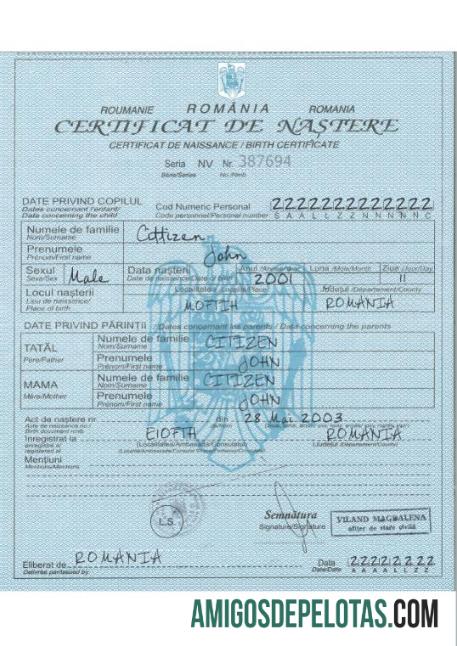 ROUMANIE ROMÂNIA ROMANIA
CERTIFICAT DE NAȘTERE
CERTIFICAT DE NAISSANCE / BIRTH CERTIFICATE
Seria NV Nr. 387694
Série/Series No./Nmb.
DATE PRIVIND COPILUL Cod Numeric Personal ZZZZZZZZZZZZZ
Dates concernant l'enfant/ Code personnel/Personal number S A A L L Z Z N N N N N C
Data concerning the child
Numele de familie Cittizen
Nom/Surname
Prenumele John
Prénom/First name
Sexul Male Data nașterii Anul Luna /Mois/Month Ziua /Jour/Day
Sexe/Sex Date de naissance/Date of birth 2001 11
Locul nașterii Localitatea Județul /Département/County
Lieu de naissance/ MOFTIH ROMANIA
Place of birth
DATE PRIVIND PĂRINȚII /Dates concernant les parents / Data concerning the parents
TATĂL Numele de familie CITIZEN
Nom/Surname
Père/Father Prenumele JOHN
Prénom/First name
MAMA Numele de familie CITIZEN
Nom/Surname
Mère/Mother Prenumele JOHN
Prénom/First name
Act de naștere nr. din 28 Mai 2003
Înregistrat la EIOFTH ROMANIA
registered at (Localitatea/Ambasada/Consulatul) Județul /Département/County
Mențiuni
Mentions/Mentions
L.S.
Semnătura VILAND MAGDALENA
Signature/Signature ofițer de stare civilă
Eliberat de ROMANIA Data ZZZZZZZZ
Délivré par/Issued by Date/Date A A A A L L Z Z
AMIGOSDEPELOTAS.COM